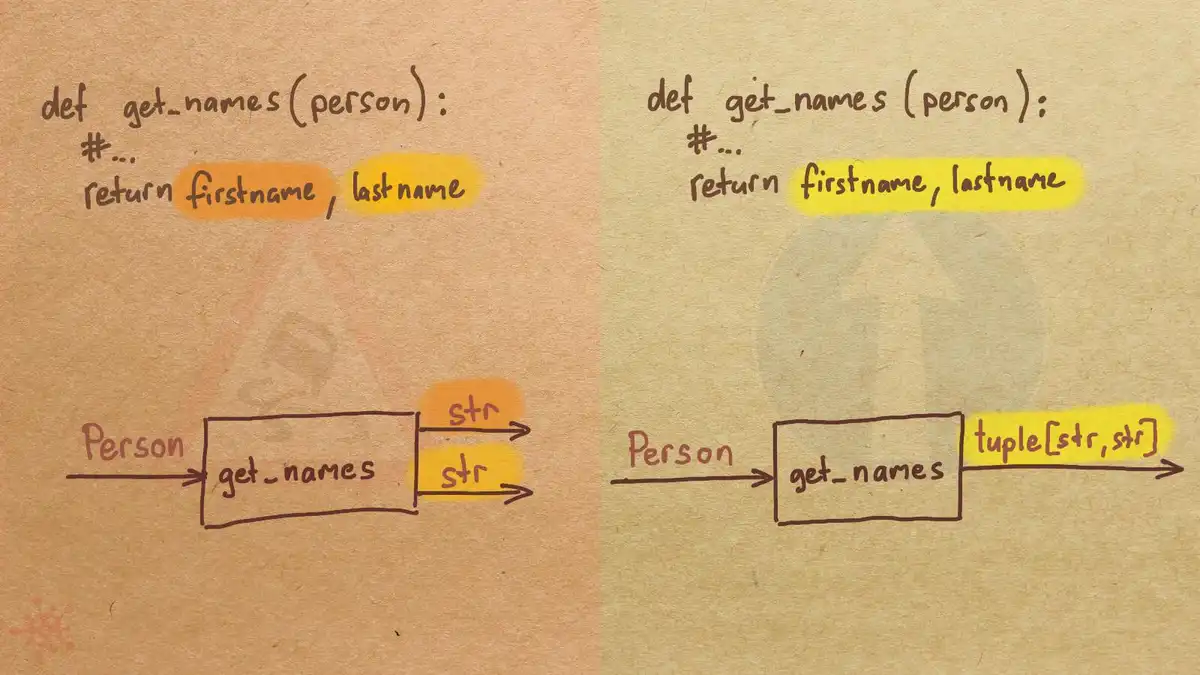 def get_names(person):
#...
return firstname, lastname
Person
get_names
str
str
def get_names(person):
#...
return firstname, lastname
Person
get_names
tuple[str,str]